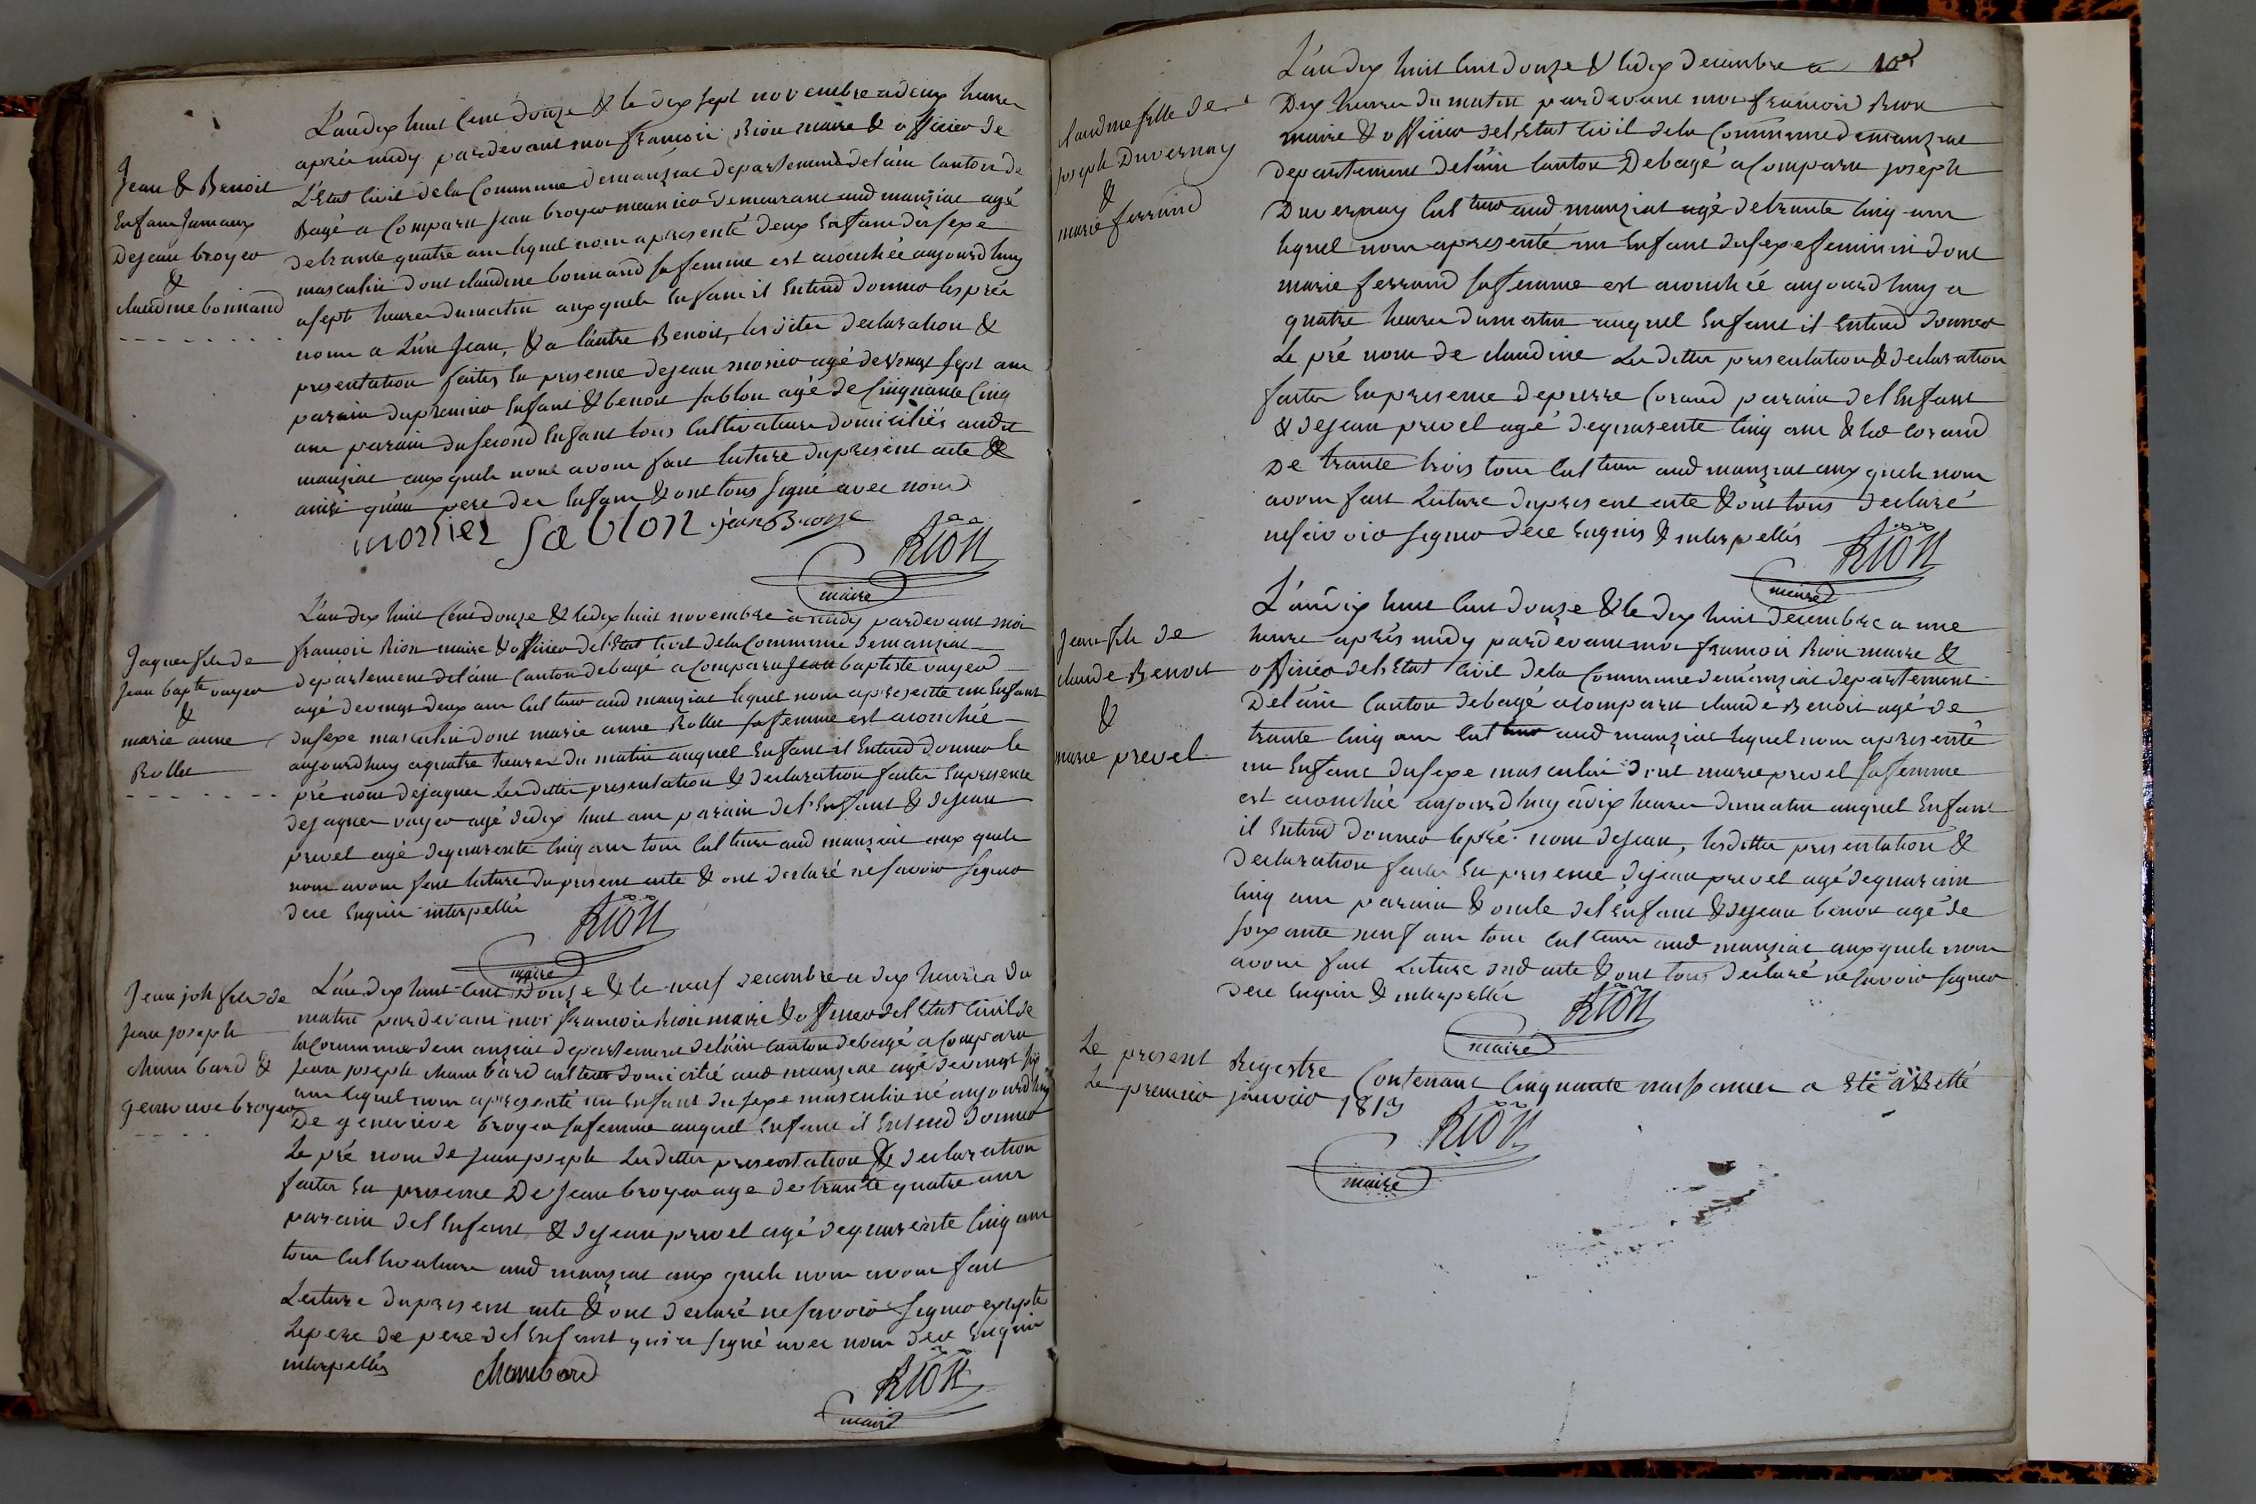 Jean & Benoit
Enfans Jumeaux
de Jean broyer
&
claudine bonnand
L'an dix huit Cent douze & le dix sept novembre a deux heures
après midy pardevant moi françois Rion maire & officier de
L'Etat Civil de la Commune de manziat departement de l'ain Canton de
Bagé a Comparu Jean broyer meunier demeurant aud manziat agé
de trante quatre ans lequel nous a presenté deux Enfans du sexe
masculin dont claudine bonnand sa femme est acouchée aujourd huy
a sept heures du matin auxquels Enfans il Entend donner les pré
noms a L'un Jean, & a l'autre Benoit, les dites declaration &
presentation faites En presence de jean monier agé de vingt sept ans
parain du premier Enfant & benoit sablon agé de Cinquante Cinq
ans parain du second Enfant tous Cultivateurs domiciliés audit
manziat auxquels nous avons fait lecture du present acte &
ainsi qu'au pere des Enfans & ont tous signé avec nous
monier sablon jean Broyer
Rion
maire
Jaques fils de
Jean bapte voyer
&
marie anne
Rollet
L'an dix huit Cent douze & le dix huit novembre a midy pardevant moi
françois Rion maire & officier de l'Etat Civil de la Commune de manziat
departement de l'ain Canton de bagé a Comparu Jean baptiste voyer
agé de vingt deux ans Cul teur aud manziat lequel nous a presenté un Enfant
du sexe masculin dont marie anne Rollet sa femme est acouchée
aujourd huy a quatre heures du matin auquel Enfant il Entend donner le
pré nom de jaques Les dittes presentation & declaration faites En presence
de jaques voyer agé de dix huit ans parain de l'Enfant & de jean
prevel agé de quarente Cinq ans tous Cul teurs aud manziat aux quels
nous avons fait lecture du present acte & ont declaré ne savoir signer
de ce Enquis interpellés
Rion
maire
Jean joh fils de
Jean Joseph
chambard &
genevieve broyer
L'an dix huit Cent Douze & le neuf decembre a dix heures du
matin pardevant moi françois Rion maire & officier de l'Etat Civil de
la Commune de manziat departement de l'ain Canton de bagé a Comparu
Jean joseph chambard cul teur domicilié aud manziat agé de vingt six
ans lequel nous a presenté un Enfant du sexe masculin né aujourd huy
De genevieve broyer sa femme auquel Enfant il Entend donner
Le pré nom de jean joseph Les dittes presentation & declaration
faites En presence De Jean broyer age de trante quatre ans
parain de l'Enfant & de jean prevel agé de quarente Cinq ans
tous Cultivateurs aud manziat aux quels nous avons fait
Lecture du present acte & ont declaré ne savoir signer exepte
Le pere de pere de l'Enfant qui a signé avec nous de ce Enquis
interpellés chambard
Rion
maire
Claudine fille de
joseph Duvernay
&
marie ferrand
L'an dix huit Cent douze & le dix decembre a
Dix heures du matin pardevant moi françois Rion
maire & officier de l'Etat Civil de la Commune de manziat
departement de l'ain Canton De bagé a Comparu joseph
Duvernay Cul teur aud manziat agé de trante Cinq ans
lequel nous a presenté un Enfant du sexe feminin dont
marie ferrand sa femme est acouchée aujourd huy a
quatre heures du matin auquel Enfant il Entend donner
Le pré nom de claudine Les dittes presentation & declaration
faites En presence de pierre Corand parain de l'Enfant
& de jean prevel agé de quarente Cinq ans & led Corand
De trante trois tous Cul teurs aud manziat aux quels nous
avons fait Lecture du present acte & ont tous declaré
ne savoir signer de ce Enquis & interpellés
Rion
maire
Jean fils de
claude Benoit
&
marie prevel
L'an dix huit Cent douze & le dix huit decembre a une
heure après midy pardevant moi françois Rion maire &
officier de l'Etat Civil de la Commune de manziat departement
De l'ain Canton de bagé a Comparu claude Benoit agé de
trante Cinq ans Cul teur aud manziat lequel nous a presenté
un Enfant du sexe masculin dont marie prevel sa femme
est acouchée aujourd huy a dix heures du matin auquel Enfant
il Entend donner le pré nom de Jean, les dittes presentation &
declaration faites En presence de jean prevel agé de quarante
Cinq ans parain & oncle de l'Enfant & de jean benoit agé de
soixante neuf ans tous Cul teurs aud manziat aux quels nous
avons fait Lecture dud acte & ont tous declaré ne savoir signer
de ce Enquis & interpellés
Rion
maire
Le present Registre Contenant Cinquante naissances a Eté arretté
Le premier janvier 1813
Rion
maire